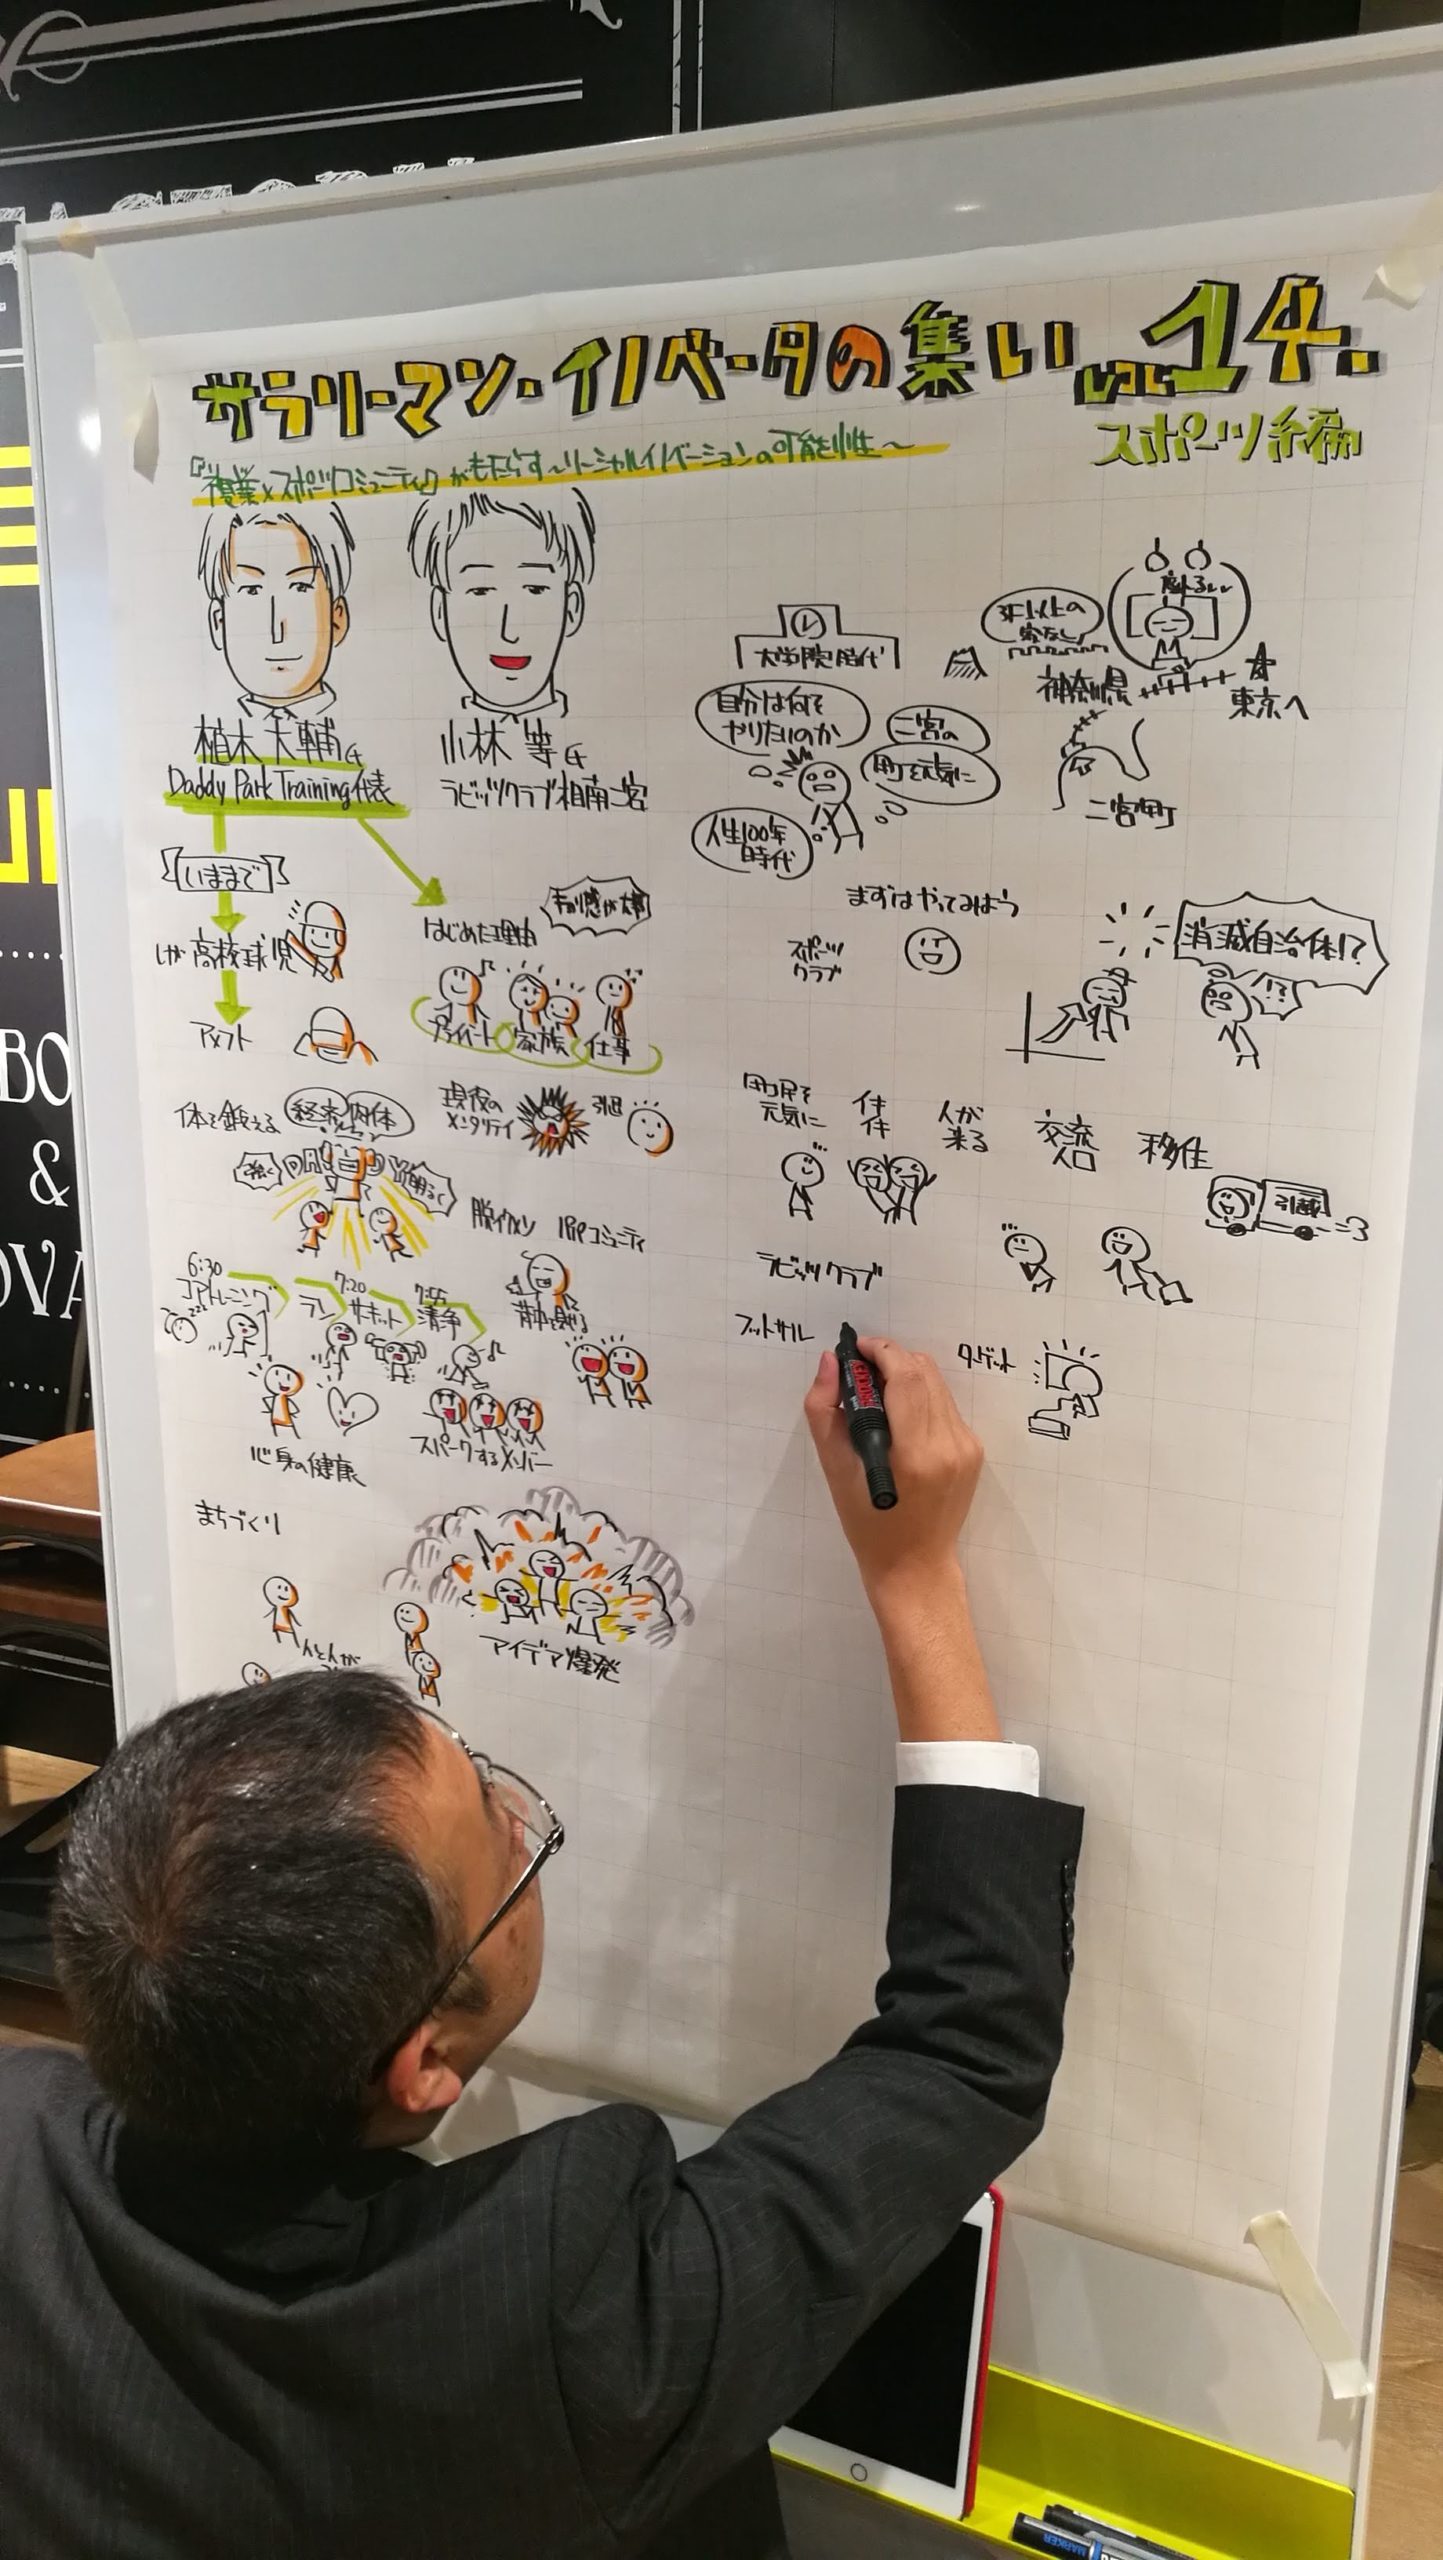 サラリーマン・イノベータの集い vol.14.
スポーツ編
『複業×スポーツコミュニティ』がもたらす〜ソーシャルイノベーションの可能性〜
植木大輔氏
Daddy Park Training代表
小林 等氏
ラビッツクラブ湘南二宮
いままで
高校球児
アメフト
はじめた理由
プライベート
家族
仕事
体を鍛える
経済
肉体
現役の
メンタリティ
引退
強く
DADDY
明るく
脱イクメン
コミュニティ
6:30
コアトレーニング
ラン
7:20
サーキット
清掃
背中を見せる
心身の健康
スパークするメンバー
まちづくり
人と人が
アイデア爆発
大学院時代
自分は何を
やりたいのか
二宮の
町を元気に
人生100年
時代
座れるし
神奈川県
東京へ
二宮町
まずはやってみよう
スポーツ
クラブ
消滅自治体!?
!?
町民を
元気に
イキ
イキ
人が
来る
交流
人口
移住
引越
ラビッツクラブ
フットサル
ターゲット
BO
&
OVA
MARKER